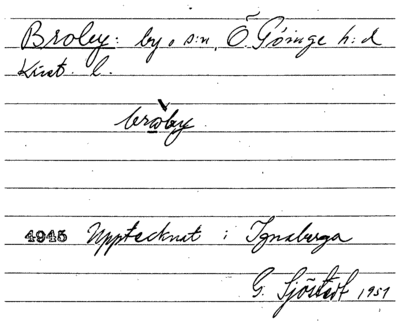 Broby: by o s:n, Ö. Göinge h:d
Krist. l.
brǒ̱by.
4945 Upptecknat i Ignaberga
G. Sjöstedt 1951